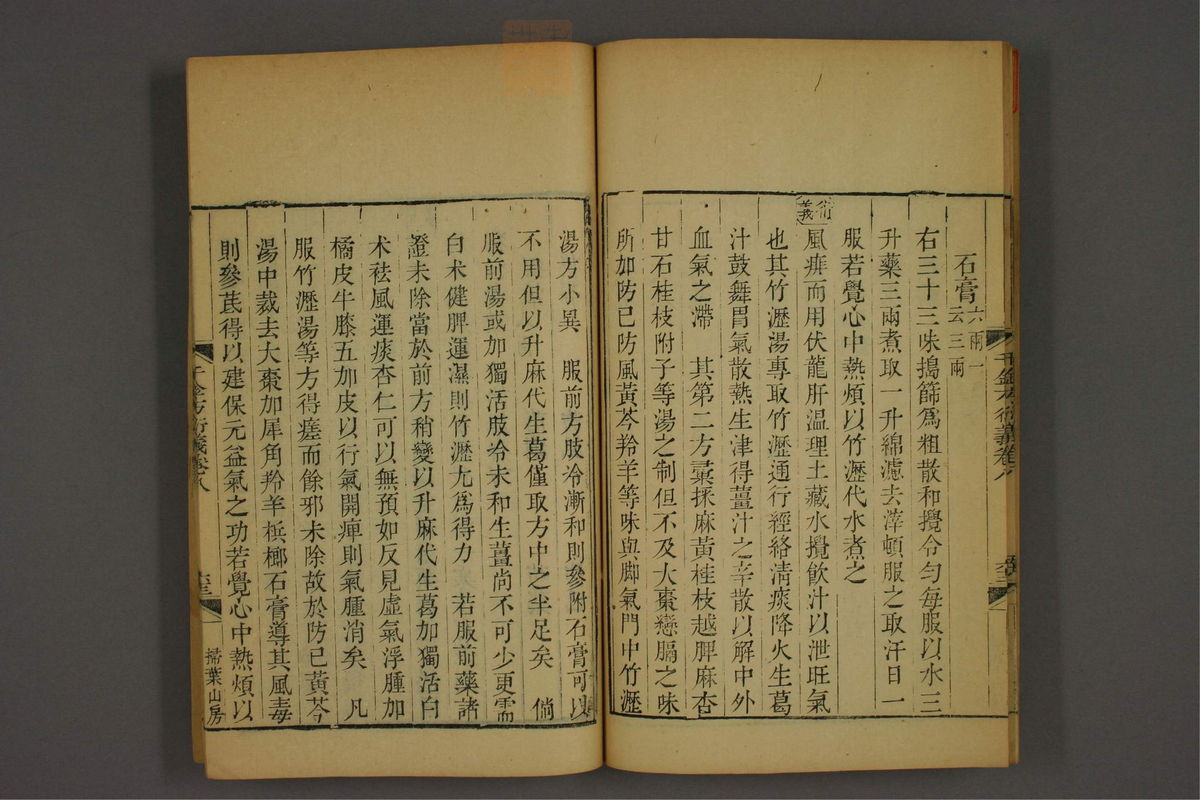 石膏六兩一
云三兩
右三十三味搗篩爲粗散和攪令勻每服以水三
升藥三兩煮取一升綿濾去滓頓服之取汗日一
服若覺心中熱煩以竹瀝代水煮之
衍義
風痱而用伏龍肝溫理土藏水攪飮汁以泄旺氣
也其竹瀝湯專取竹瀝通行經絡淸痰降火生葛
汁鼓舞胃氣散熱生津得薑汁之辛散以解中外
血氣之滯　其第二方彙採麻黃桂枝越脾麻杏
甘石桂枝附子等湯之制但不及大棗戀膈之味
所加防已防風黃芩羚羊等味與脚氣門中竹瀝
千金方衍義卷八
湯方小異　服前方肢冷漸和則參附石膏可以
不用但以升麻代生葛僅取方中之半足矣　倘
服前湯或加獨活肢冷未和生薑尙不可少更需
白朮健脾運濕則竹瀝尤爲得力　若服前藥諸
證未除當於前方稍變以升麻代生葛加獨活白
朮袪風運痰杏仁可以無預如反見虛氣浮腫加
橘皮牛膝五加皮以行氣開痺則氣腫消矣　凡
服竹瀝湯等方得瘥而餘邪未除故於防已黃芩
湯中裁去大棗加犀角羚羊檳榔石膏導其風毒
則參芪得以建保元益氣之功若覺心中熱煩以
千金方衍義卷八
掃葉山房